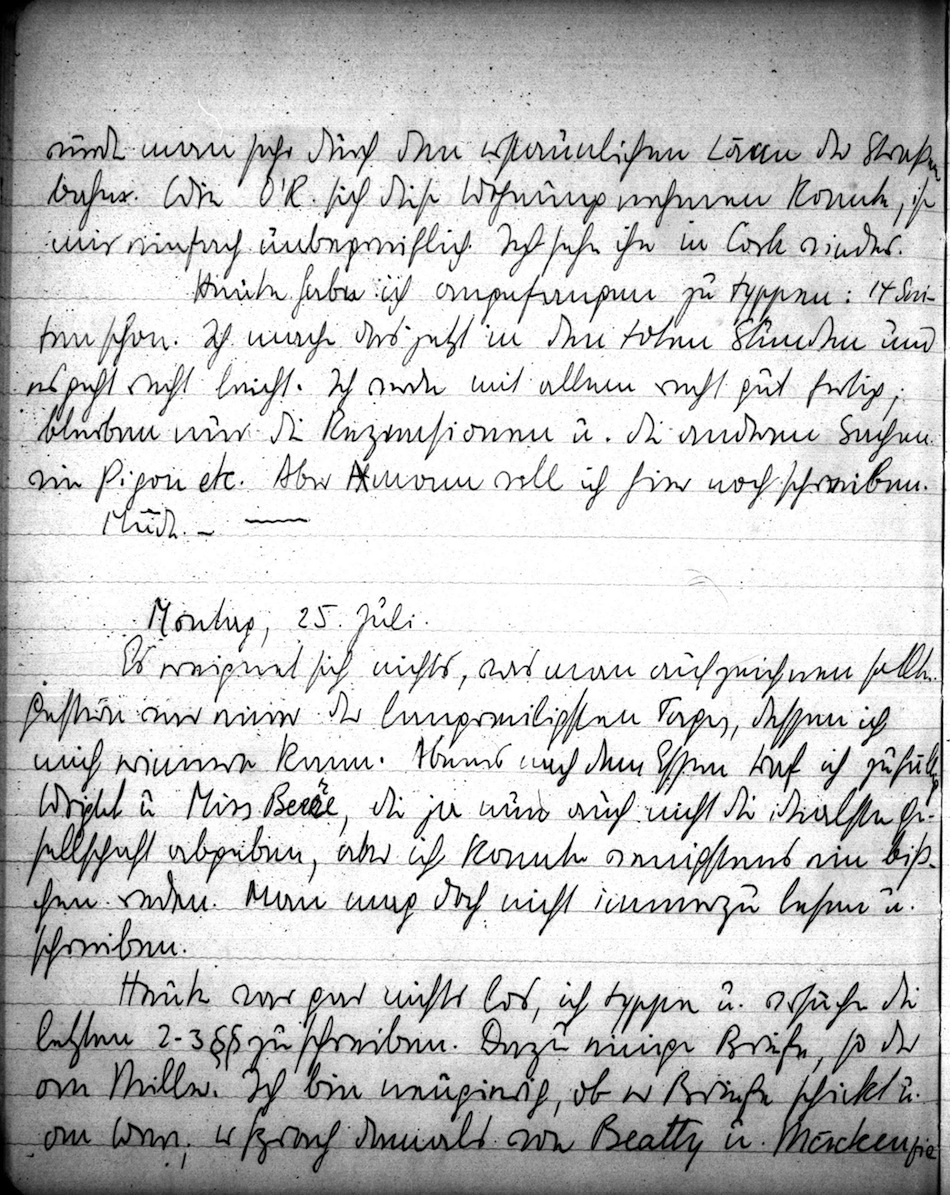 wird man sehr durch den erstaunlichen Lärm der Straßen-
bahn. Wie O'R. sich diese Wohnung nehmen konnte, ist
mir einfach unbegreiflich. Ich sehe ihn in Cork wieder.
Heute habe ich angefangen zu typpen: 14 Sei-
ten schon. Ich mache das jetzt in den toten Stunden und
es geht recht leicht. Ich werde mit allem recht gut fertig,
bleiben nur die Rezensionen u. die anderen Sachen
wie Pigon etc. Aber will ich hier noch schreiben.
Müde. –
Montag, 25. Juli.
Es ereignet sich nichts, was man aufzeichnen sollte.
Gestern war einer der langweiligsten Tage, dessen ich
mich erinnern kann. Abends nach dem Essen traf ich zufällig
Wright u. Miss, die ja nun auch nicht die idealste Ge-
sellschaft abgeben, aber ich konnte wenigstens ein biß-
chen reden. Man mag doch nicht immerzu lesen u.
schreiben.
Heute war gar nichts los, ich typpe u. versuche die
letzten 2-3 §§ zu schreiben. Dazu einige Briefe, so der
an Miller. Ich bin neugierig, ob er Briefe schickt u.
an wen, er sprach damals von Beatty u. Mackenzie